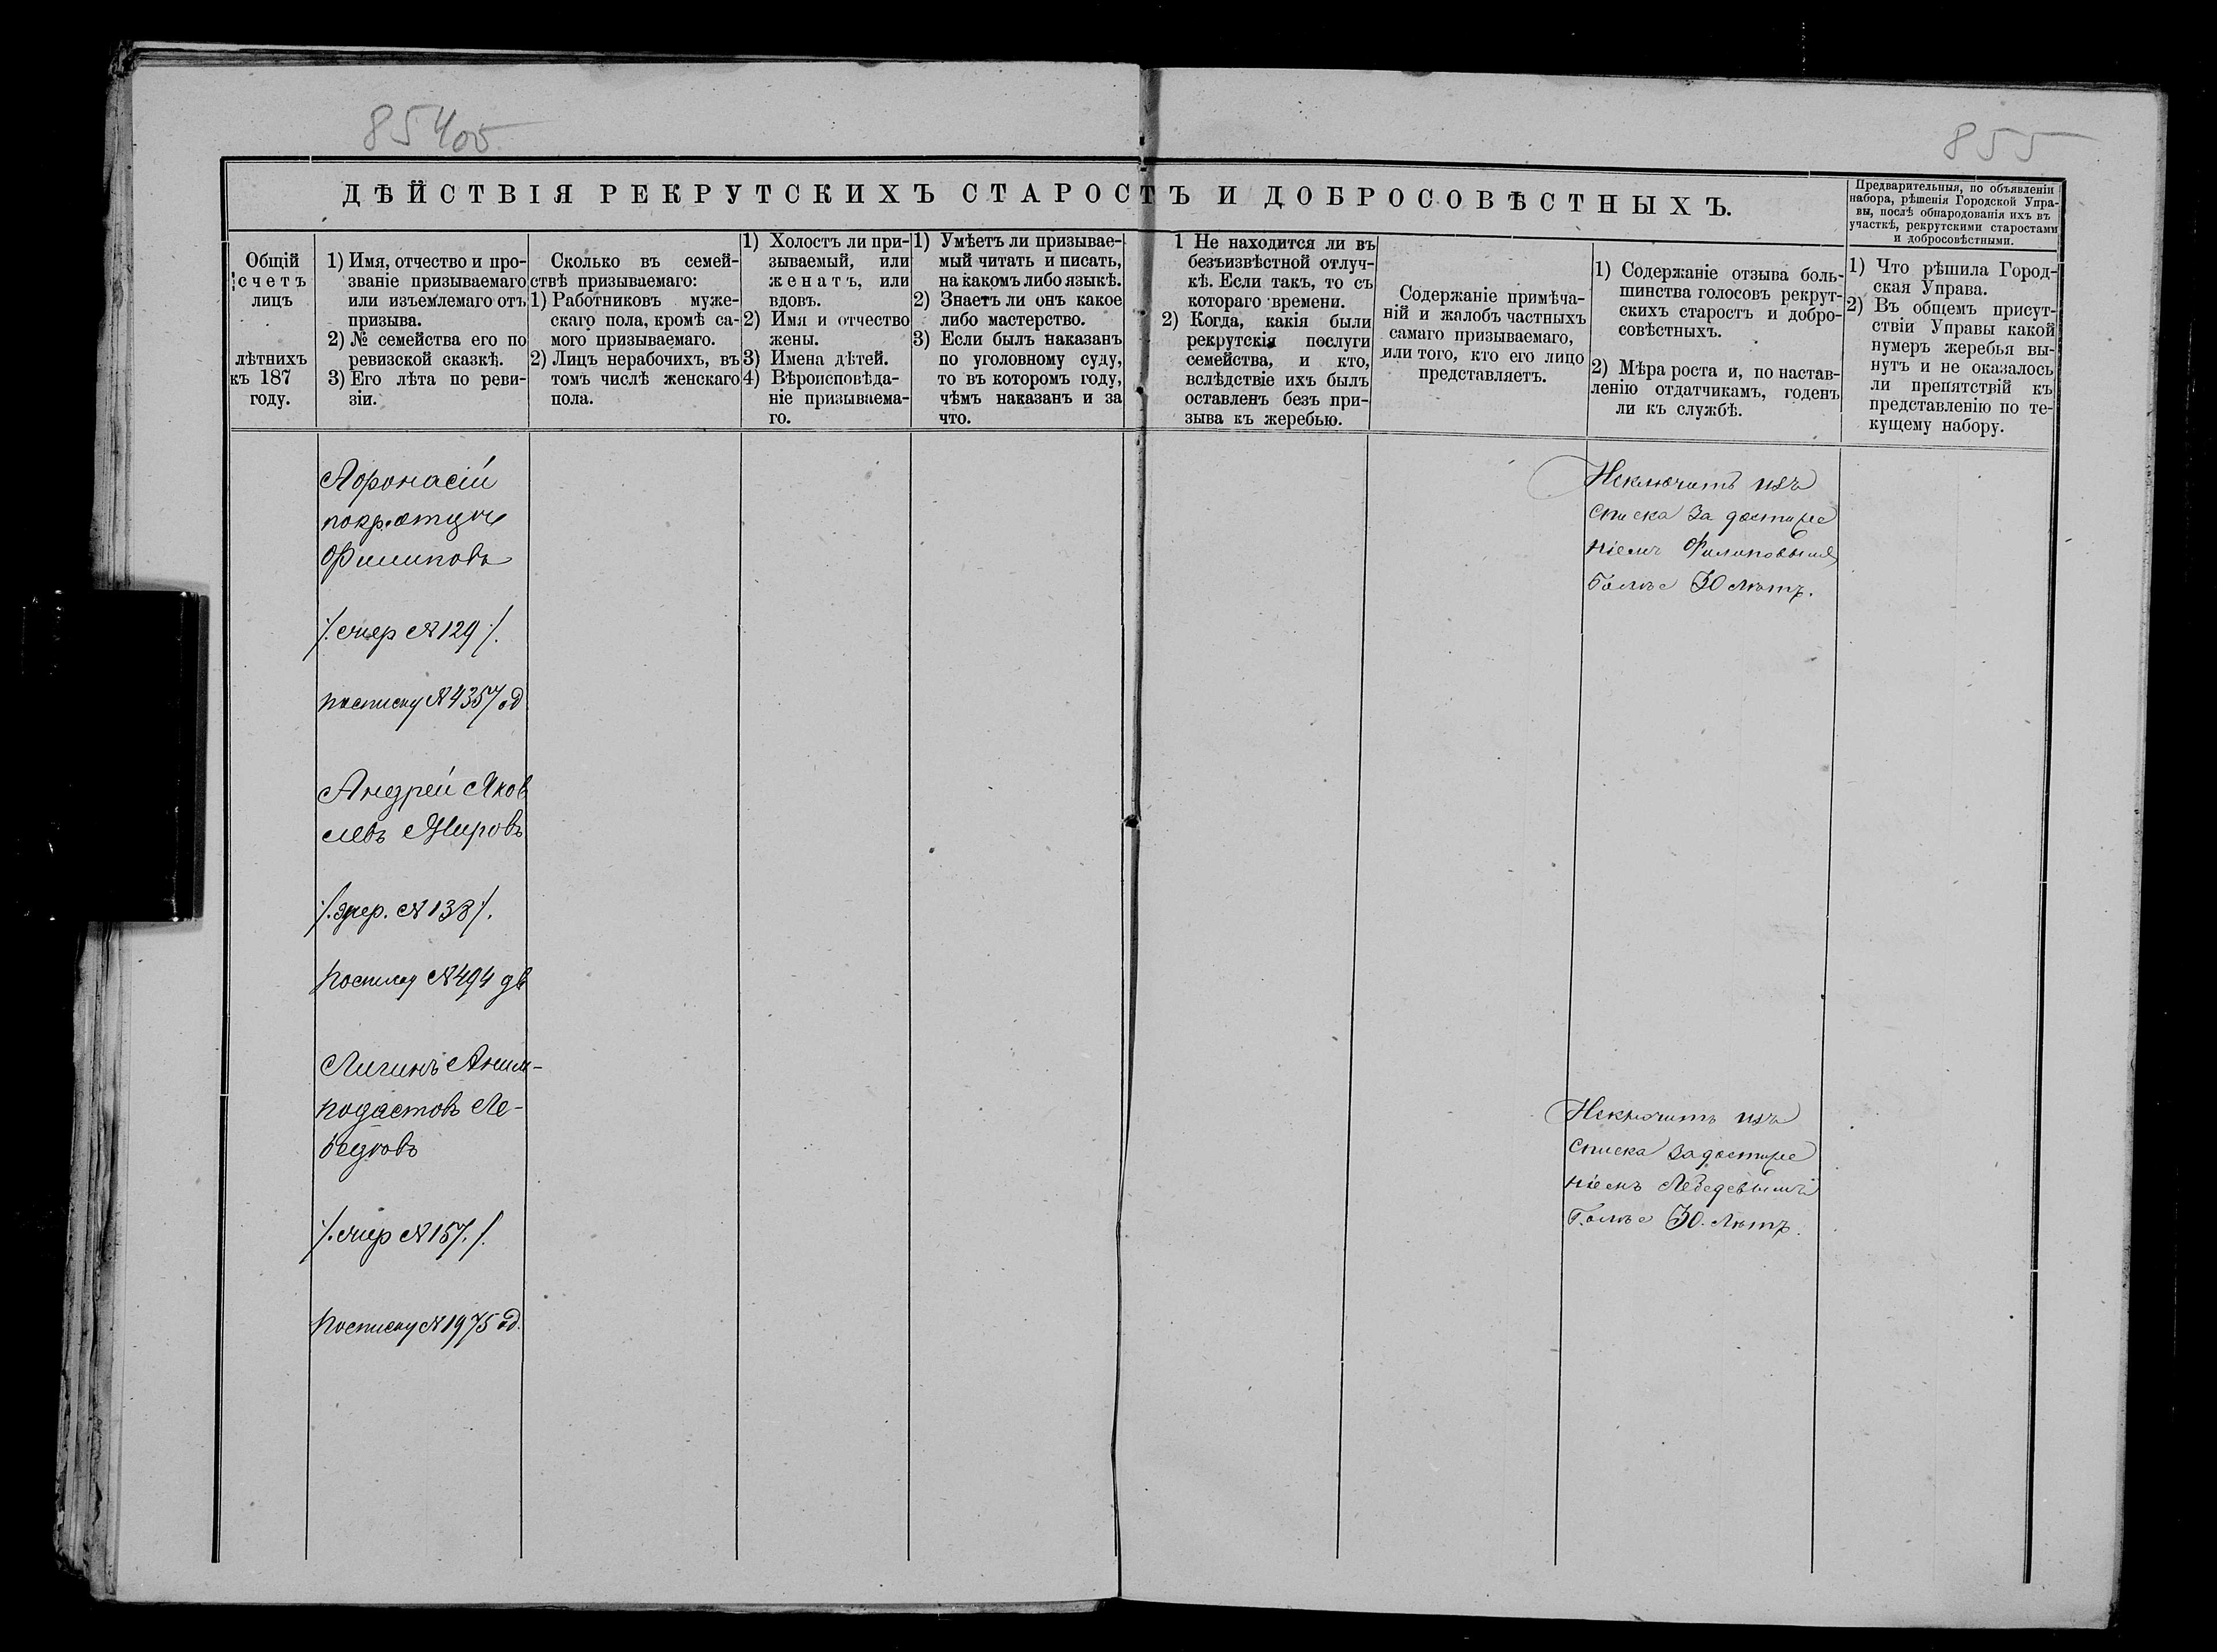 854об
855
ДѢЙСТВІЯ РЕКРУТСКИХЪ СТАРОСТЪ И ДОБРОСОВѢСТНЫХЪ.
Предварительныя, по объявленіи
набора, рѣшенія Городской Упра-
вы, послѣ обнародованія ихъ въ
участкѣ, рекрутскими старостами
и добросовѣстными.
Общій
счетъ
лицъ
лѣтнихъ
къ 187
году.
1) Имя, отчество и про-
званіе призываемаго
или изъемлемаго отъ
призыва.
2) № семейства его по
ревизской сказкѣ.
3) Его лѣта по реви-
зіи.
Сколько въ семей-
ствѣ призываемаго:
1) Работниковъ муже-
скаго пола, кромѣ са-
мого призываемаго.
2) Лицъ нерабочихъ, въ
томъ числѣ женскаго
пола.
1) Холостъ ли при-
зываемый, или
женатъ, или
вдовъ.
2) Имя и отчество
жены.
3) Имена дѣтей.
4) Вѣроисповѣда-
ніе призываема-
го.
1) Умѣетъ ли призывае-
мый читать и писать,
на какомъ либо языкѣ.
2) Знаетъ ли онъ какое
либо мастерство.
3) Если былъ наказанъ
по уголовному суду,
то въ которомъ году,
чѣмъ наказанъ и за
что.
1 Не находится ли въ
безъизвѣстной отлуч-
кѣ. Если такъ, то съ
котораго времени.
2) Когда, какія были
рекрутскія послуги
семейства, и кто,
вслѣдствіе ихъ былъ
оставленъ безъ при-
зыва къ жеребью.
Содержаніе примѣча-
ній и жалобъ частныхъ
самаго призываемаго,
или того, кто его лицо
представляетъ.
1) Содержаніе отзыва боль-
шинства голосовъ рекрут-
скихъ старостъ и добро-
совѣстныхъ.
2) Мѣра роста и, по настав-
ленію отдатчикамъ, годенъ
ли къ службѣ.
1) Что рѣшила Город-
ская Управа.
2) Въ общемъ присут-
ствіи Управы какой
нумеръ жеребья вы-
нутъ и не оказалось
ли препятствій къ
представленію по те-
кущему набору.
Афонасій
по кр. отцу
Филиповъ
№ 129
по списку № 4357 од
Андрей Яков
левъ Жировъ
№ 138
по списку № 494 дв
Анем-
подастовъ Ле-
бедковъ
№ 157.
по списку № 1975 од.
Исключить изъ
списка за достиже
ніемъ Филиповымъ
болѣе 30 лѣтъ.
Исключить изъ
списка за достиже
ніемъ Лебедевымъ
болѣе 30. лѣтъ.